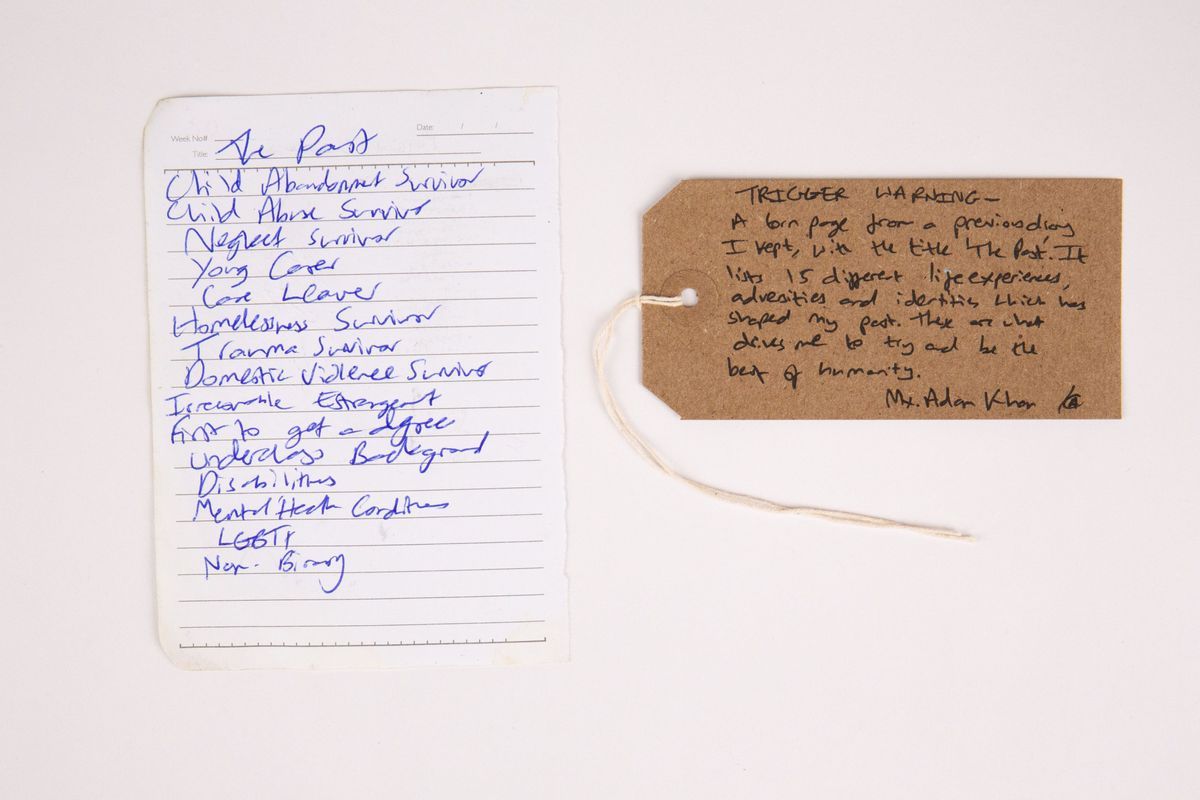 Week No#
Date: / /
Title:
The Past
Child Abandonment Survivor
Child Abuse Survivor
Neglect Survivor
Young Carer
Care Leaver
Homelessness Survivor
Trauma Survivor
Domestic Violence Survivor
Estrangement
First to get a degree
Underclass Background
Disabilities
Mental Health Conditions
LGBT+
Non-Binary
TRIGGER WARNING-
A torn page from a previous diary
I kept, with the title 'The Past'. It
lists 15 different life experiences,
adversities and identities which has
shaped my past. These are what
drives me to try and be the
best of humanity.
Mx. Adan Khan